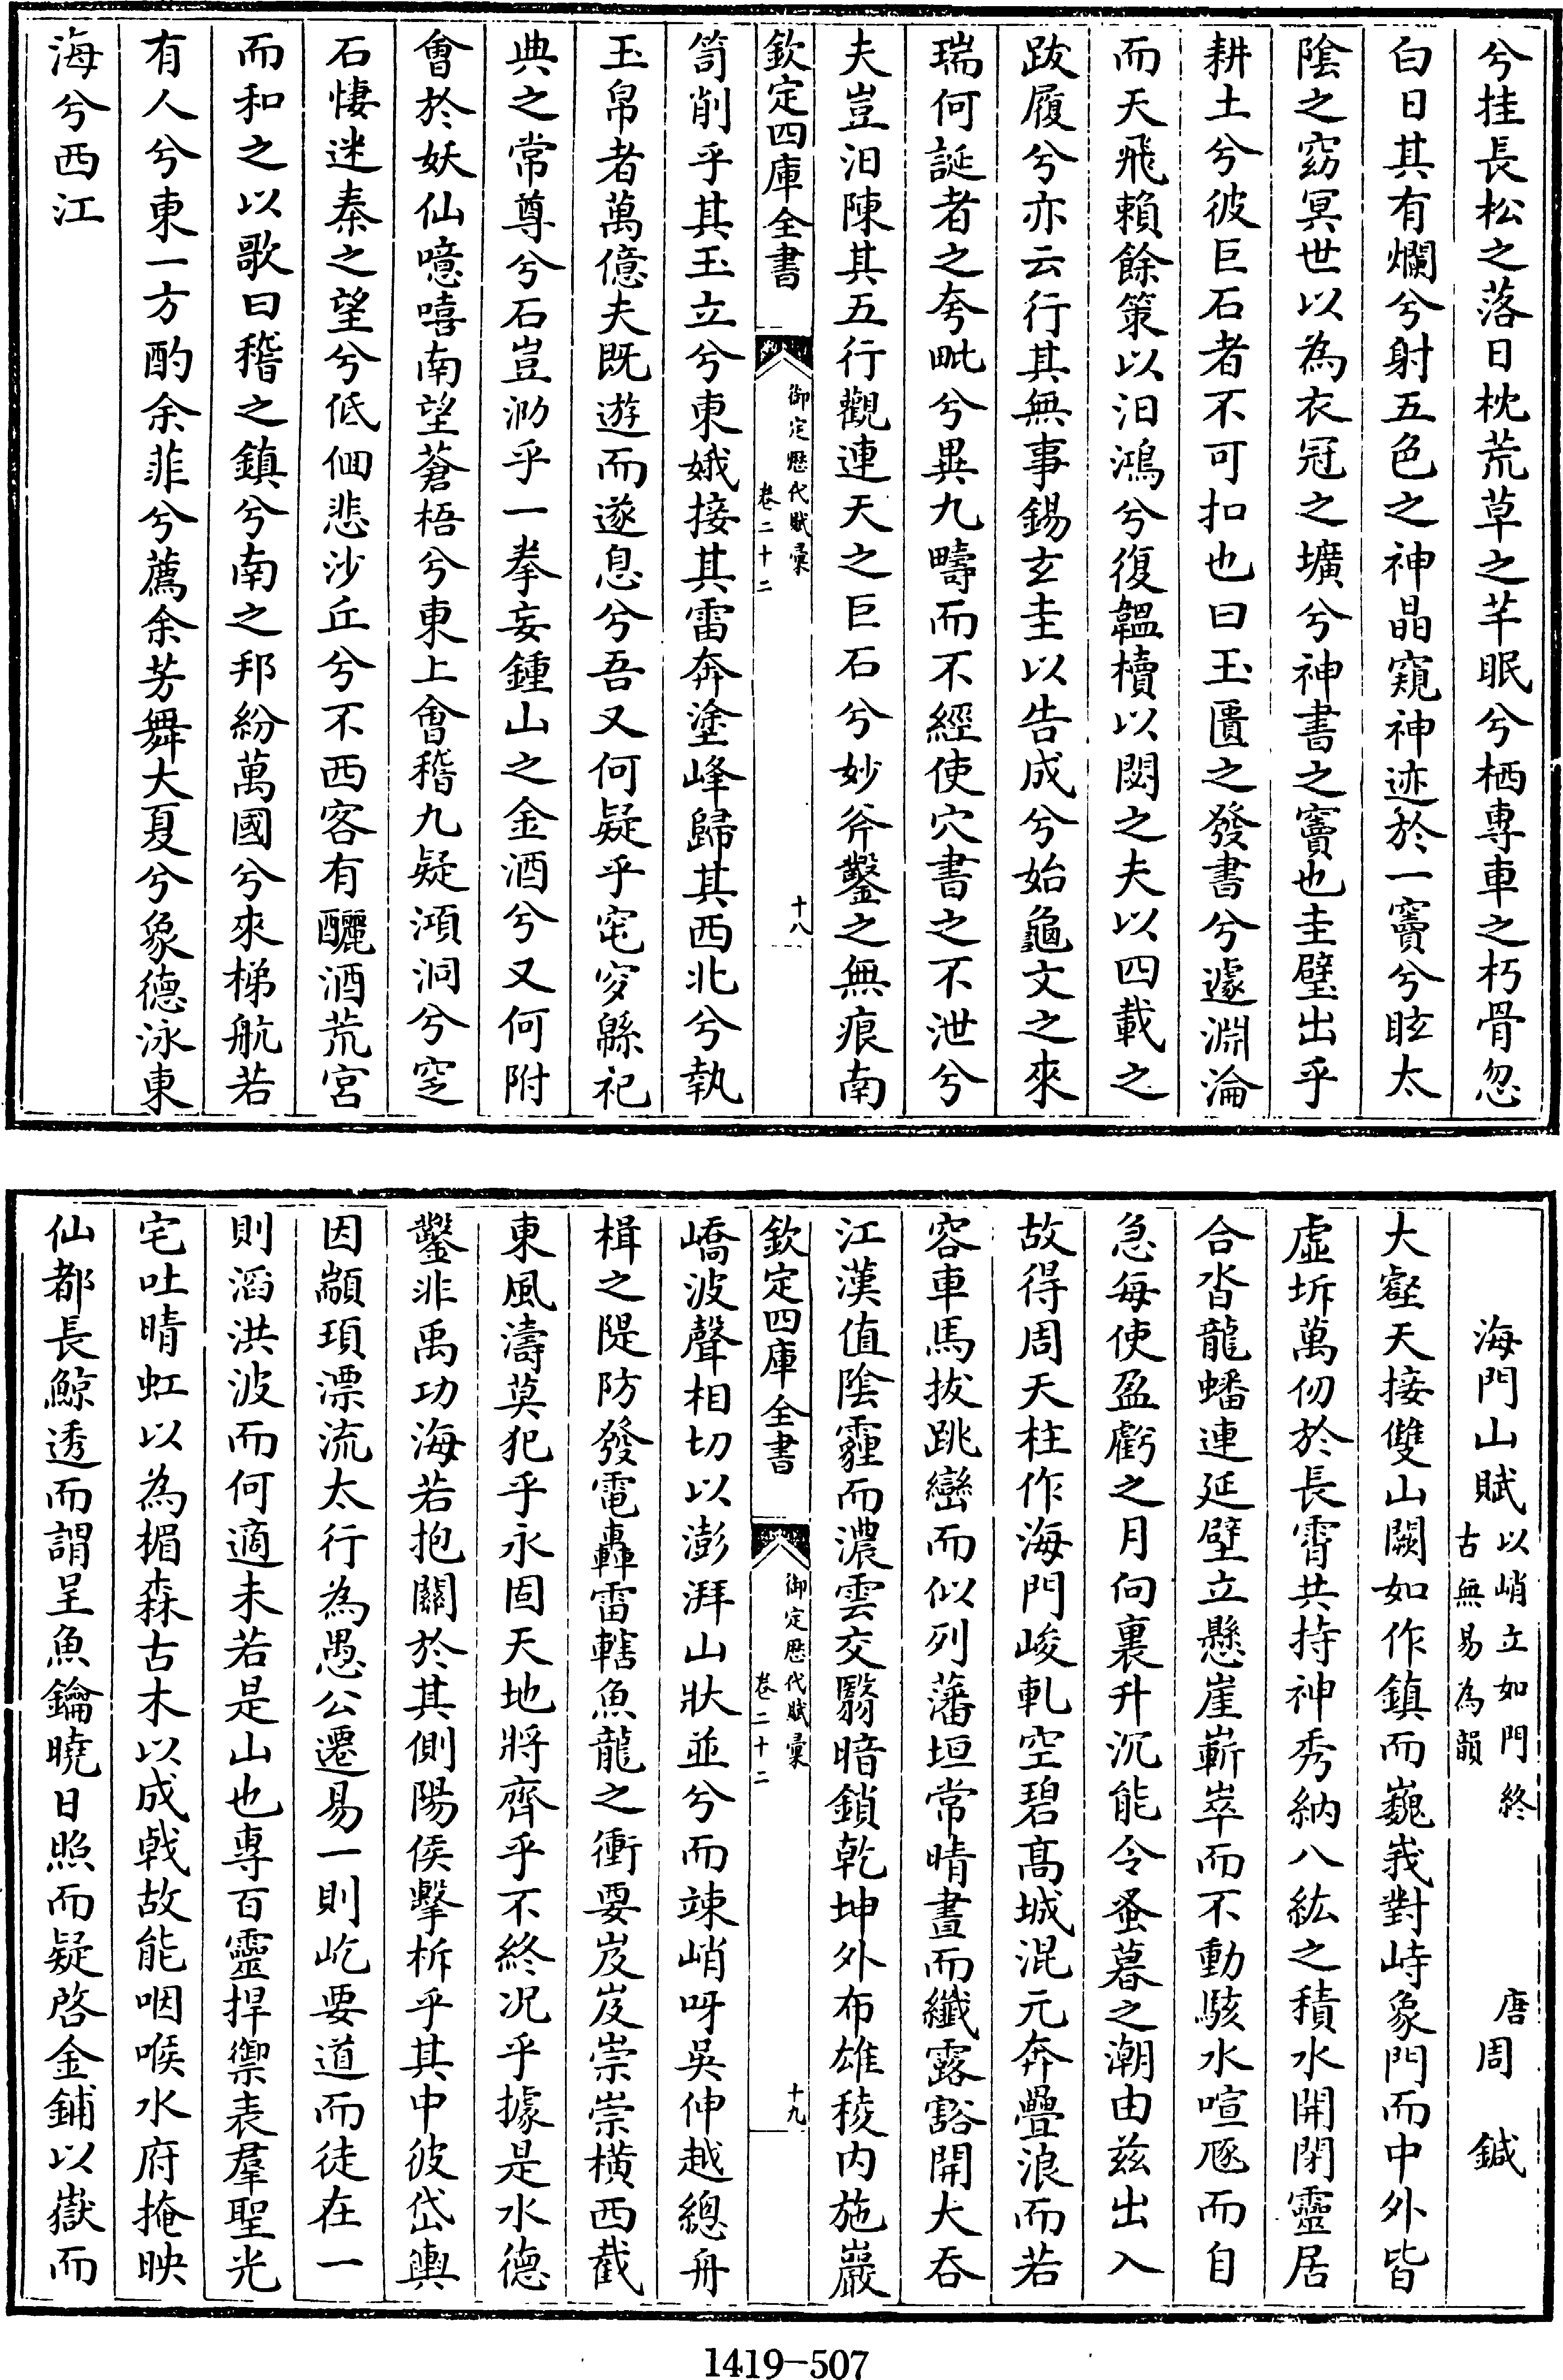 兮挂長松之落日枕荒草之芊眠兮栖專車之朽骨忽
白日其有爛兮射五色之神晶窺神迹於一竇兮眩太
陰之窈冥世以為衣冠之壙兮神書之竇也圭璧出乎
耕土兮彼巨石者不可扣也曰玉匱之發書兮遽淵淪
而天飛賴餘策以汩鴻兮復韞櫝以閟之夫以四載之
跋履兮亦云行其無事錫玄圭以告成兮始龜文之來
瑞何誕者之夸毗兮異九疇而不經使穴書之不泄兮
夫豈汩陳其五行觀連天之巨石兮妙斧鑿之無痕南
欽定四庫全書
御定歷代賦彙
卷二十二
十八
笥削乎其玉立兮東娥接其雷奔塗峰歸其西北兮執
玉帛者萬億夫既遊而遂息兮吾又何疑乎窀穸緜祀
典之常尊兮石豈泐乎一拳妄鍾山之金酒兮又何附
會於妖仙噫嘻南望蒼梧兮東上會稽九疑澒洞兮窆
石悽迷秦之望兮低佪悲沙丘兮不西客有釃酒荒宮
而和之以歌曰稽之鎮兮南之邦紛萬國兮來梯航若
有人兮東一方酌余菲兮薦余芳舞大夏兮象德泳東
海兮西江
海門山賦
以峭立如門終
古無易為韻
唐周 鍼
大壑天接雙山闕如作鎮而巍峩對峙象門而中外皆
虛坼萬仞於長霄共持神秀納八紘之積水開閉靈居
合沓龍蟠連延壁立懸崖嶄崒而不動駭水喧豗而自
急每使盈虧之月向裏升沉能令蚤暮之潮由茲出入
故得周天柱作海門峻軋空碧髙城混元奔疊浪而若
容車馬拔跳巒而似列藩垣常晴晝而纖露豁開大吞
江漢值陰霾而濃雲交翳暗鎖乾坤外布雄稜內施巖
欽定四庫全書
御定歷代賦彙
卷二十二
十九
嶠波聲相切以澎湃山狀並兮而竦峭呀吳伸越總舟
楫之隄防發電轟雷轄魚龍之衝要岌岌崇崇橫西截
東風濤莫犯乎永固天地將齊乎不終况乎據是水德
鑿非禹功海若抱關於其側陽侯擊柝乎其中彼岱輿
因顓頊漂流太行為愚公遷易一則屹要道而徒在一
則滔洪波而何適未若是山也專百靈捍禦表羣聖光
宅吐晴虹以為楣森古木以成戟故能咽喉水府掩映
仙都長鯨透而謂呈魚鑰曉日照而疑啓金鋪以嶽而
1419-507